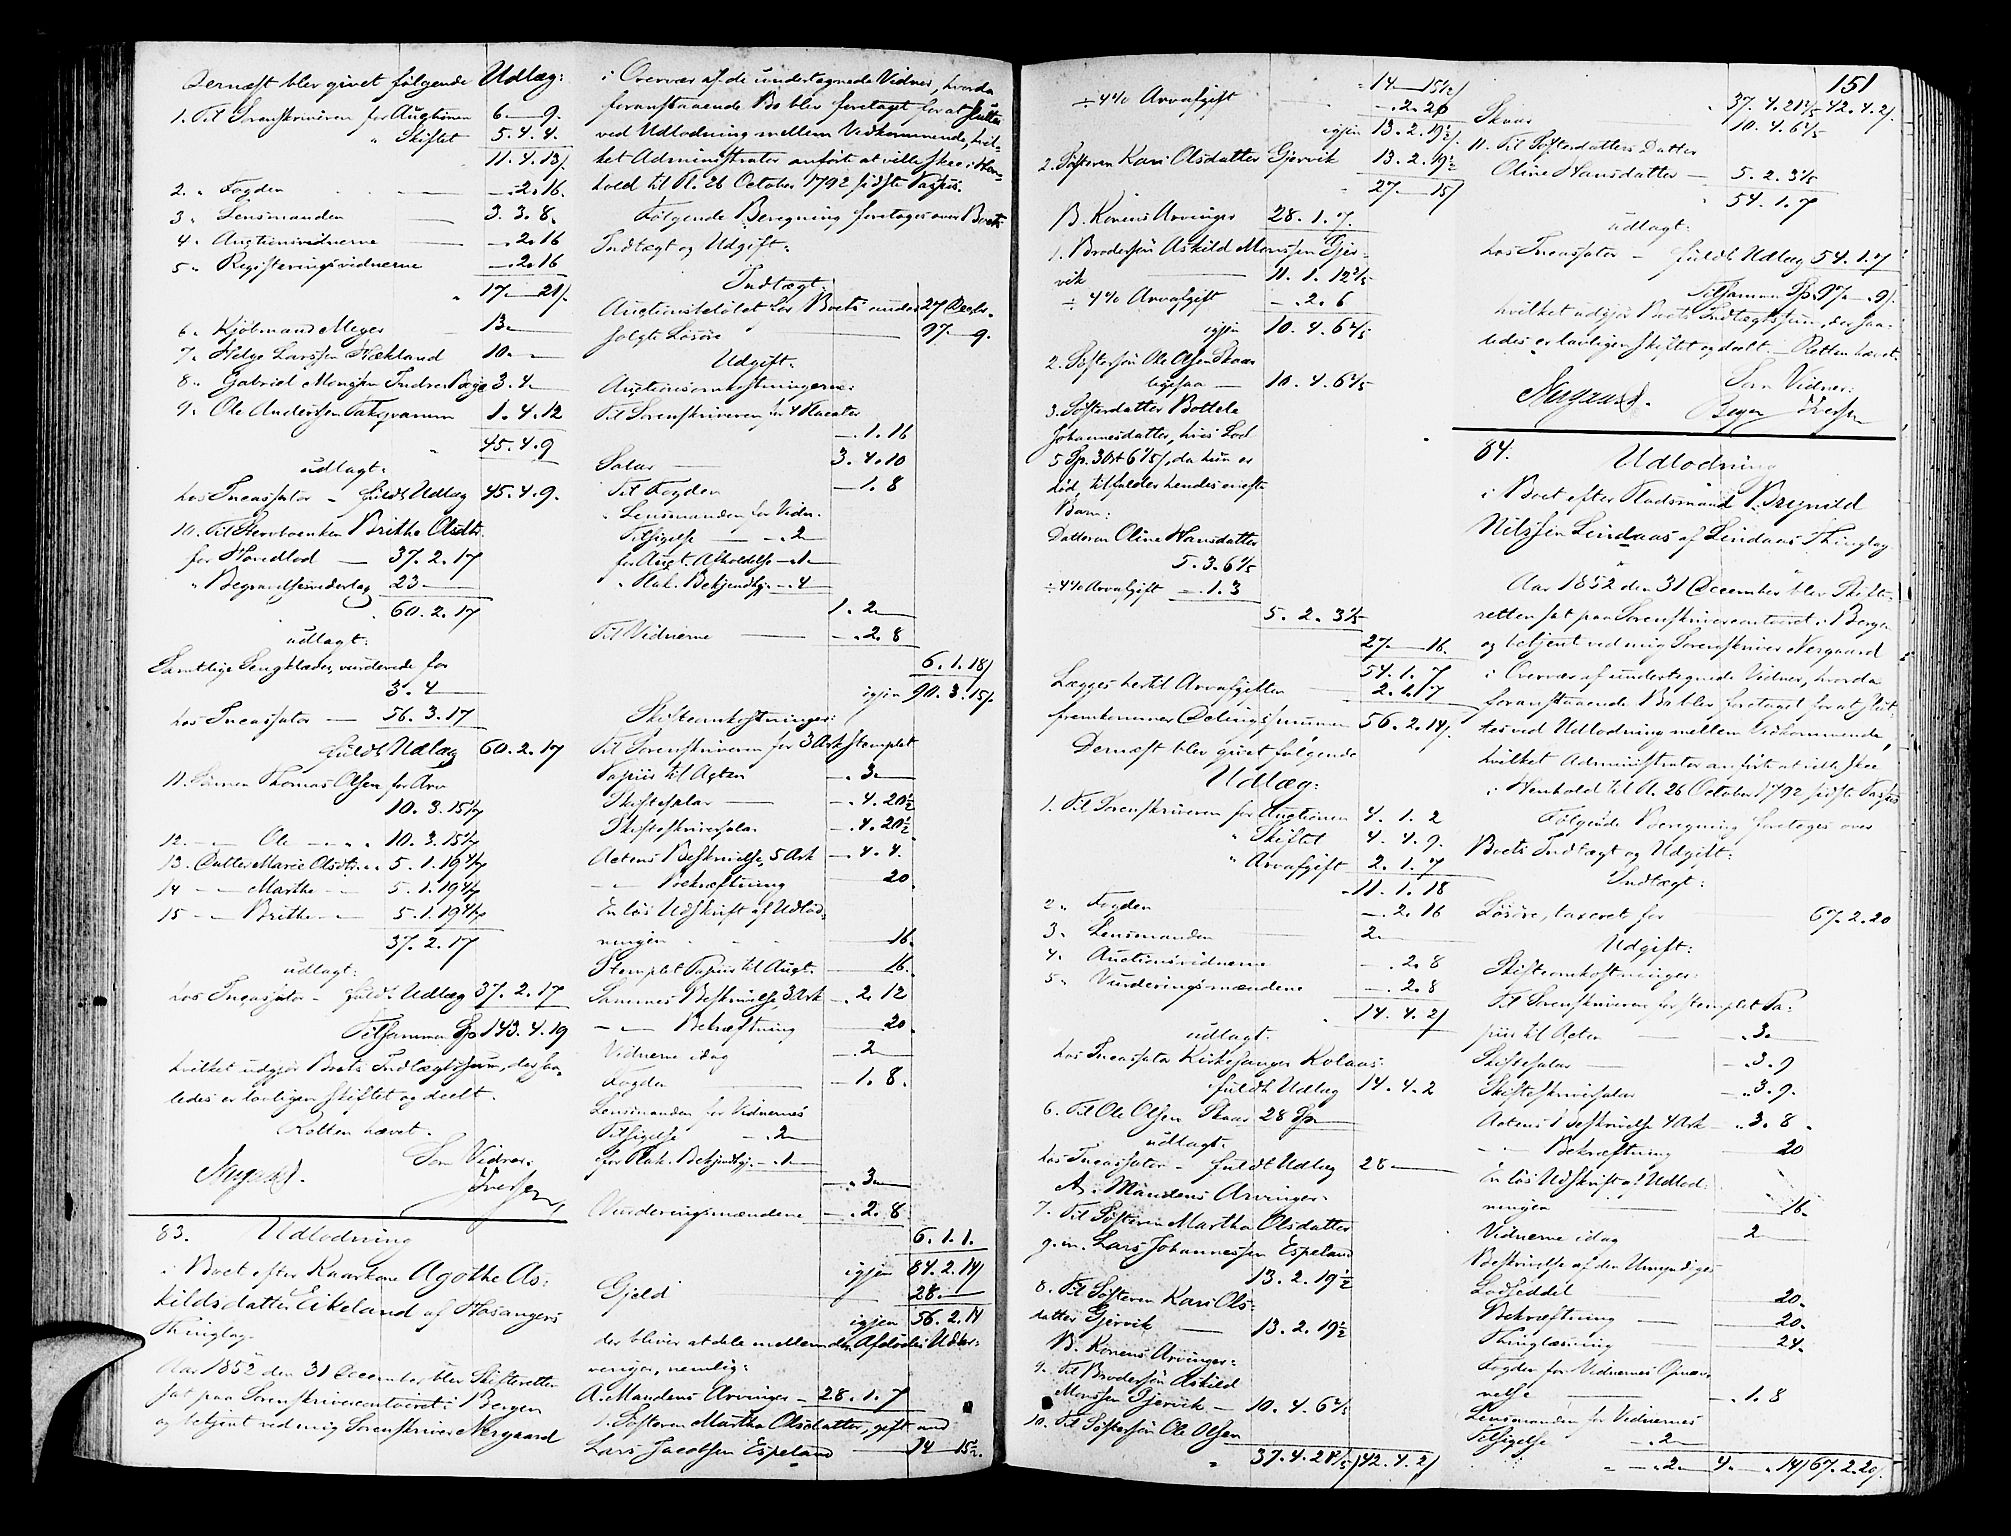 Dernæst blev givet følgende Udlæg:
1. Til Sorenskriveren for Auctionen 6 - 9.
" Skiftet 5. 4. 4.
11. 4. 13/.
2. " Fogden - . 2. 16.
3. " Lensmanden 3. 3. 8.
4. " Auctionsvidnerne - . 2. 16
5. " Registeringsvidnerne - . 2. 16
17. - 21/.
6. " Kjøbmand Meyer 13. -
7. " Helge Larssen Hækland 10. - -
8. " Gabriel Monssen Indre Bøe 3. 4 -
9. " Ole Anderssen 1. 4. 12
45. 4. 9
udlagt:
hos Incassator - fuldt Udlæg 45. 4. 9.
10. Til Stervboenken Brithe Olsdtr.
for Hovedlod - 37. 2. 17
" Begravelsesudlæg 23 -
60. 2. 17
udlagt:
Samtlige Sengklæder, vurderede for
3. 4 -
hos Incassator - 56. 3. 17
fuldt Udlæg 60. 2. 17
11. Sønnen Thomas Olsen for Arv
10. 3. 15 1/7
12. - Ole - " " 10. 3. 15 1/7
13. Datter Marie Olsdtr. " 5. 1. 19 4/7
14 - - Marthe - 5. 1. 19 4/7
15 - - Brithe - 5. 1. 19 4/7
37. 2. 17
udlagt:
hos Incassator - fuldt Udlæg 37. 2. 17
Tilsammen Sp 143. 4. 19
hvilket udgjør Boets Indtægtssum, der saa-
ledes er lovligen skiftet og deelt.
Retten hævet.
Nergaard. Som Vidner:
Iversen
83. Udlodning
i Boet efter Kaarkone Agothe As-
kildsdatter Eikeland af Hosangers
Thinglag.
Aar 1852 den 31 December blev Skifteretten
sat paa Sorenskrivercontoiret i Bergen
og betjent ved mig Sorenskriver Nergaard
i Overvær af de undertegnede Vidner, hvorda
foranstaaende Bo blev foretaget for at slutte
ved Udlodning mellem Vedkommende, hvil-
ket Administrator anførte at ville skee i Hen-
hold til A. 26 October 1792 sidste Passus.
Følgende Beregning foretages over Boets
Indtægt og Udgift:
Indtægt:
Auctionsbeløbet for Boets under 27 Decbr.
solgte Løsøre 97 - 9.
Udgift:
Auctionsomkostningerne:
Til Sorenskriveren for 4 Placater
- . 1. 16
Salar - 3. 4. 10
Til Fogden - 1. 8
" Lensmanden for Vidn.
Tilsigelse - - . 2 -
for Auct. Afholdelse - . 1 -
" Plak. Bekjendtgj. - . 4
1. 2 -
Til Vidnerne - - . 2. 8
6. 1. 18/
igjen 90. 3. 15/.
Skifteomkostninger:
Til Sorenskriveren for 3 Ark stemplet
Papiir til Acten - . 3 -
Skiftesalar - - . 4. 20 1/2
Skifteskriversalar - . 4. 20 1/2
Actens Beskrivelse, 5 Ark - . 4. 4.
- - Bekræftning - 20.
En løs Udskrift af Udlod-
ningen - 16.
Stemplet Papiir til Auct. - 16.
Sammes Beskrivelse, 3 Ark - . 2. 12
- - Bekræftning 20.
Vidnerne idag - . 2 -
Fogden - . 1. 8.
Lensmanden for Vidnernes
Tilsigelse - . 2 -
for Plak. Bekjendtgj. - . 1 -
- . 3 -
Vurderingsmændene - . 2. 8
6. 1. 1.
igjen 84. 2. 14/
Gjeld 28. -
igjen 56. 2. 14
der bliver at dele mellem den Afdødes Udar-
vinger, nemlig:
A. Mandens Arvinger - 28. 1. 7
1. Søsteren Martha Olsdatter, gift med
Lars Jacobsen Espeland - 14 - 15 1/2.
14 - 15 1/2/
÷ 4% Arvafgift - . 2. 20
igjen 13. 2. 19 1/2/.
2. Søsteren Kari Olsdatter Gjervik 13. 2. 19 1/2
27. - 15/
B. Konens Arvinger 28. 1. 7.
1. Brodersøn Askild Monssen Gjer-
vik 11. 1. 12 2/5
÷ 4% Arvafgift - . 2. 6
igjen 10. 4. 6 2/5
2. Søstersøn Ole Olsen Skaar
ligesaa - 10. 4. 6 2/5
3. Søsterdatter Bottele
Johannesdatter, hvis Lod
5 Sp. 3 Ort 6 1/5/, da hun er
død, tilfalder hendes en efterl.
Barn:
Datteren Oline Hansdatter
5. 3. 6 1/5
÷ 4% Arvafgift - . 1. 3
5. 2. 3 1/5
27. - 16.
54. 1. 7
Lægges hertil Arvafgiften 2. 1. 7
fremkommer Delingssummen 56. 2. 14/.
Dernæst blev givet følgende
Udlæg:
1. Til Sorenskriveren for Auctionen 4. 1. 2
" Skiftet 4. 4. 9.
" Arvafgift 2. 1. 7
11. 1. 18
2. " Fogden - . 2. 16
3. " Lensmanden 2 -
4. " Auctionsvidnerne - . 2. 8
5. " Vurderingsmændene - . 2. 8
14. 4. 2/
udlagt:
hos Incassator Kirkesanger Kolaas:
fuldt Udlæg 14. 4. 2
6. Til Ole Olsen Skaar 28 Sp
udlagt:
hos Incassator - fuldt Udlæg 28 -
A. Mandens Arvinger.
7. Til Søsteren Martha Olsdatter
g. m. Lars Johannessen Espeland
13. 2. 19 1/2
8. Til Søsteren Kari Ols-
datter Gjervik - 13. 2. 19 1/2
B. Konens Arvinger:
9. Til Brodersøn Askild
Monssen Gjervik - 10. 4. 6 2/5
10. Til Søstersøn Ole Olsen
" 37. 4. 21 4/5 42. 4. 2/
151
37. 4. 21 4/5 42. 4. 2/.
Skaar 10. 4. 6 2/5
11. Til Søsterdatters Datter
Oline Hansdatter - 5. 2. 3 1/5
54. 1. 7
udlagt:
hos Incassator - fuldt Udlæg 54. 1. 7
Tilsammen Sp. 97 - 9/.
hvilket udgjør Boets Indtægtssum, der saa-
ledes er lovligen skiftet og deelt. - Retten hævet.
Som Vidner:
Nergaard. Beyer Iversen
84. Udlodning
i Boet efter Pladsmand Brynild
Nilssen Lindaas af Lindaas Thinglag.
Aar 1852 den 31 December blev Skifte-
retten sat paa Sorenskrivercontoiret i Bergen
og betjent ved mig Sorenskriver Nergaard
i Overvær af undertegnede Vidner, hvorda
foranstaaende Bo blev foretaget for at slut-
tes ved Udlodning mellem Vedkommende,
hvilket Administrator anførte at ville skee
i Henhold til A. 26 October 1792 sidste Passus
Følgende Beregning foretages over
Boets Indtægt og Udgift:
Indtægt:
Løsøre, taxeret for 67. 2. 20
Udgift:
Skifteomkostninger:
Til Sorenskriveren for stemplet Pa-
piir til Acten - . 3 -
Skiftesalar - - . 3. 9
Skifteskriversalar - . 3. 9.
Actens Beskrivelse 4 Ark - . 3. 8.
- - Bekræftning 20
En løs Udskrift af Udlod-
ningen 16.
Vidnerne idag 2 -
Beskrivelse af den Umyndiges
Lodseddel 20.
Bekræftning - 20.
Thinglæsning 24.
Fogden for Vidnernes Opnæv-
nelse - . 1. 8
Lensmanden for Vidnernes
Tilsigelse - . 2 -
" - . 2 - 4. - . 14/ 67. 2. 20/.